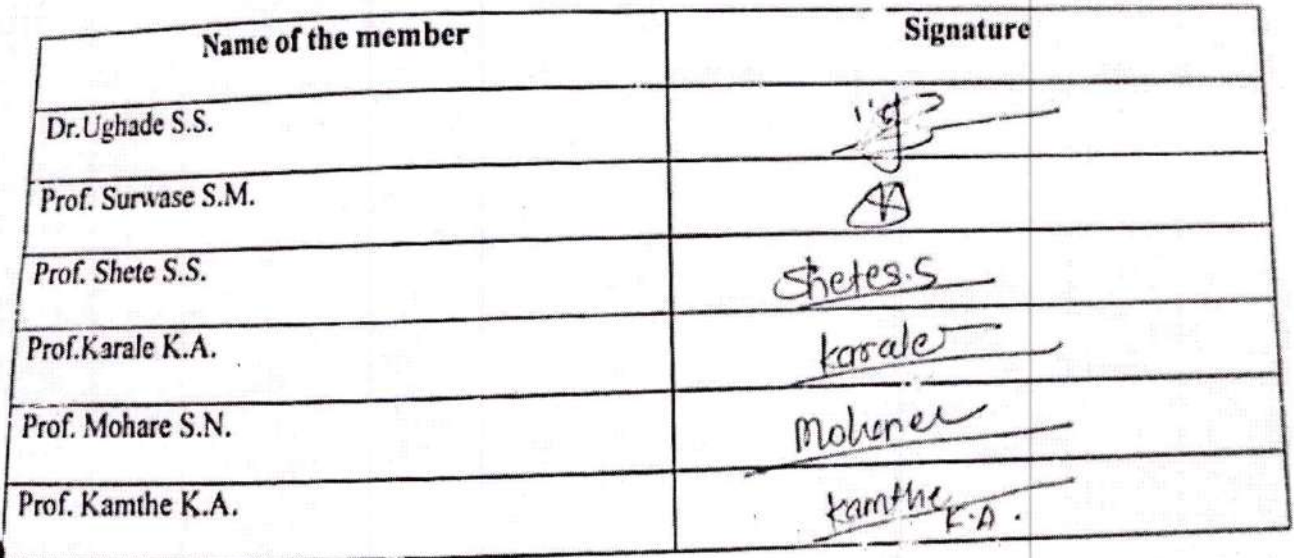 Name of the member Signature
Dr.Ughade S.S.
Prof. Surwase S.M.
Prof. Shete S.S. Shetes.S
Prof.Karale K.A. Karale
Prof. Mohare S.N. Mohare
Prof. Kamthe K.A. Kamthe K.A.